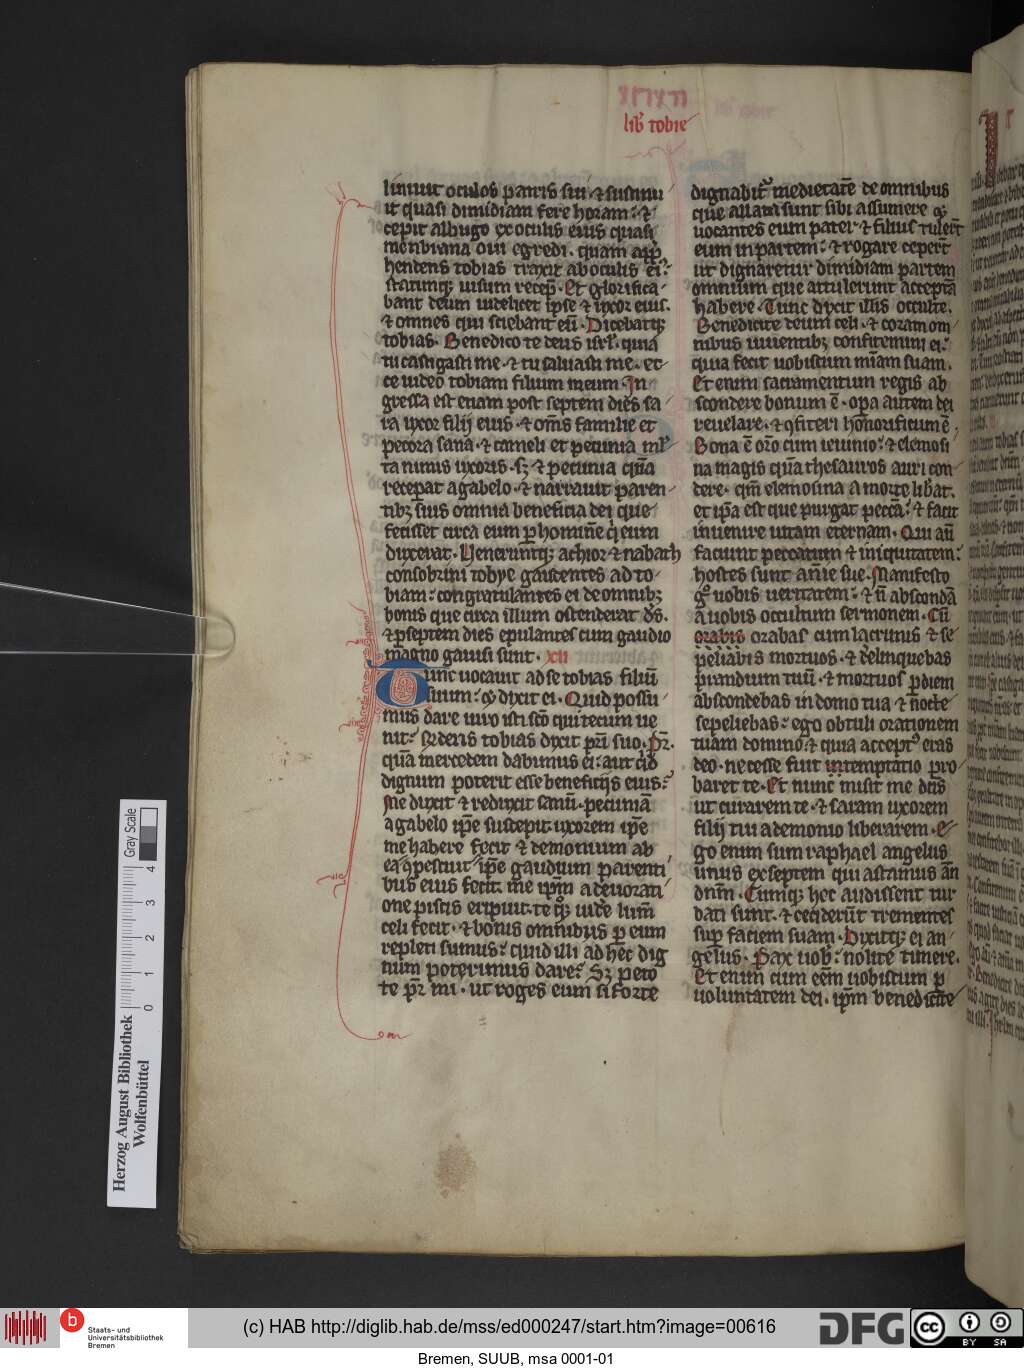 lib̄ tobie
liniuit oculos patris sui · ⁊ sustinu
it quasi dimidiam fere horam · ⁊
cepit albugo ex oculis eius quasi
menbrana oui egredi . quam app̄
hendens tobias traxit ab oculis ei᷒
statimqꝫ uisum recep̄ . Et glorifica
bant deum uidelicet ipse ⁊ uxor eius .
⁊ omnes qui sciebant eū . Dicebatqꝫ
tobias . Benedico te deus isrl̄ . quia
tu castigasti me . ⁊ tu saluasti me . ec
ce uideo tobiam filium meum . In
gressa est etiam post septem dies sa
ra uxor filij eius . ⁊ om̄s familie et
pecora sana . ⁊ cameli et pecunia ml̄
ta nimis uxoris . sꝫ ⁊ pecunia qm̄a
receperat a gabelo . ⁊ narrauit paren
tibꝫ suis omnia beneficia dei que
fecisset circa eum ꝑ homin̄e qi eum
duxerat . Ueneruntqꝫ achior ⁊ nabath
consobrini tobye gaudentes ad to
biam : congratulantes ei de omnibꝫ
bonis que circa illum ostenderat ds̄ .
⁊ ꝑ septem dies epulantes cum gaudio
magno gauisi sunt . xii
Tunc uocauit ad se tobias filiū
suum : ⁊ dixit ei . Quid possu
mus dare uiro isti sco̅ qui tecum ue
nit : Rn̄dens tobias dixit pr̄i suo . Pr̄ .
quā mercedem dabimus ei : aut qid
dignum poterit esse beneficijs eius :
Me duxit ⁊ reduxit sanū . pecuniā
a gabelo ip̄e suscepit uxorem ip̄e
me habere fecit ⁊ demonium ab
ea ꝯpescuit ip̄e gaudium parenti
bus eius fecit . me ip̄m a deuorati
one piscis eripuit . te qꝫ uide lum̄
celi fecit . ⁊ bonis omnibus ꝑ eum
repleti sumus : quid illi ad hec dig
num poterimus dare : Sꝫ peto
te pr̄ mi . ut roges eum si forte
dignabit᷒ medietatē de omnibus
que allata sunt sibi assumere ⁊
uocantes eum pater ⁊ filius tuler̄t
eum in partem : ⁊ rogare ceper̄t
ut dignaretur dimidiam partem
omnium que attulerunt acceptā
habere . Tunc dixit illis occulte .
Benedicite deum celi . ⁊ coram om
nibus uiuentibꝫ confitemini ei :
quia fecit uobiscum miā̅m suam .
Et enim sacramentum regis ab
scondere bonum ē . opa autem dei
reuelare . ⁊ ꝯfiteri honorificum ē .
Bona ē oro̅ cum ieiunio : ⁊ elemosi
na magis quā thesauros auri con
dere . qm̄ elemosina a morte lib̄at .
et ip̄a est que purgat peccā̅ : ⁊ facit
inuenire uitam eternam . Qui au̅
faciunt peccatum ⁊ iniquitatem :
hostes sunt an̄ie sue . Manifesto
gͦ uobis ueritatem : ⁊ n̄ abscondā
a uobis occultum sermonem . Cū
orabis orabas cum lacrimis ⁊ se
peliabis mortuos . ⁊ delinquebas
prandium tuū . ⁊ mortuos ꝑ diem
abscondebas in domo tua ⁊ nocte
sepeliebas : ego obtuli orationem
tuam domino . ⁊ quia accept᷒ eras
deo . necesse fuit ut temptatio pro
baret te . Et nunc misit me dn̄s
ut curarem te . ⁊ saram uxorem
filij tui a demonio liberarem . E
go enim sum raphael angelus
unus ex septem qui astamus an̄
dnm̄ . Cumqꝫ hec audissent tur
bati sunt . ⁊ ceciderūt trementes
suꝑ faciem suam . Dixitqꝫ ei an
gelus . Pax uob̄ : nolite timere .
Et enim cum eēm uobiscum ꝑ
uoluntatem dei . ip̄m benedicite
Herzog August Bibliothek
Wolfenbüttel
0 1 2 3 4
Gray Scale
b Staats- und
Universitätsbibliothek
Bremen
(c) HAB http://diglib.hab.de/mss/ed000247/start.htm?image=00616
DFG
cc BY SA
Bremen, SUUB, msa 0001-01